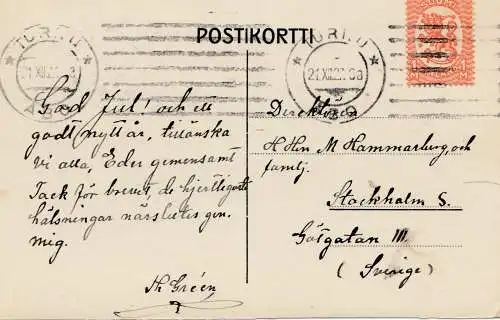 POSTIKORTTI
TURKU
21.XII.
ÅBO
TURKU
21.XII.
ÅBO
SUOMI
God Jul! och ett
godt nytt år, tillönska
vi alla, Eder gemensamt
Tack för brevet, de hjertligaste
hälsningar närslutes gen.
mig.
Th Gréen
Direktören
H Hrr M Hammarberg, och
familj.
Stockholm S.
Götgatan 111
(Sverige)